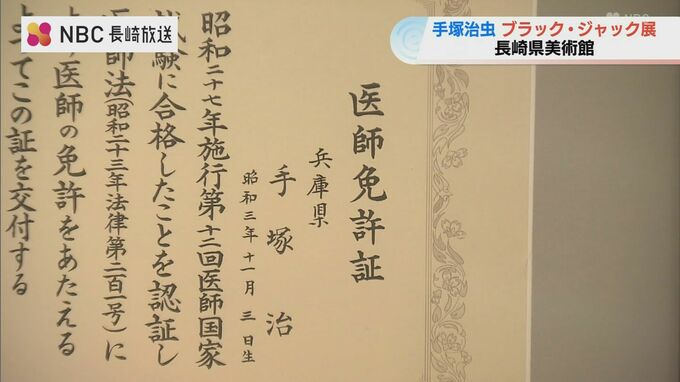 NBC 長崎放送
手塚治虫 ブラック・ジャック展
長崎県美術館
医師免許証
兵庫県
手塚治
昭和三年十一月三日生
昭和二十七年施行第十三回医師国家
試験に合格したことを認証し
医師法(昭和二十三年法律第二百一号)に
より医師の免許をあたえる
よってこの証を交付する